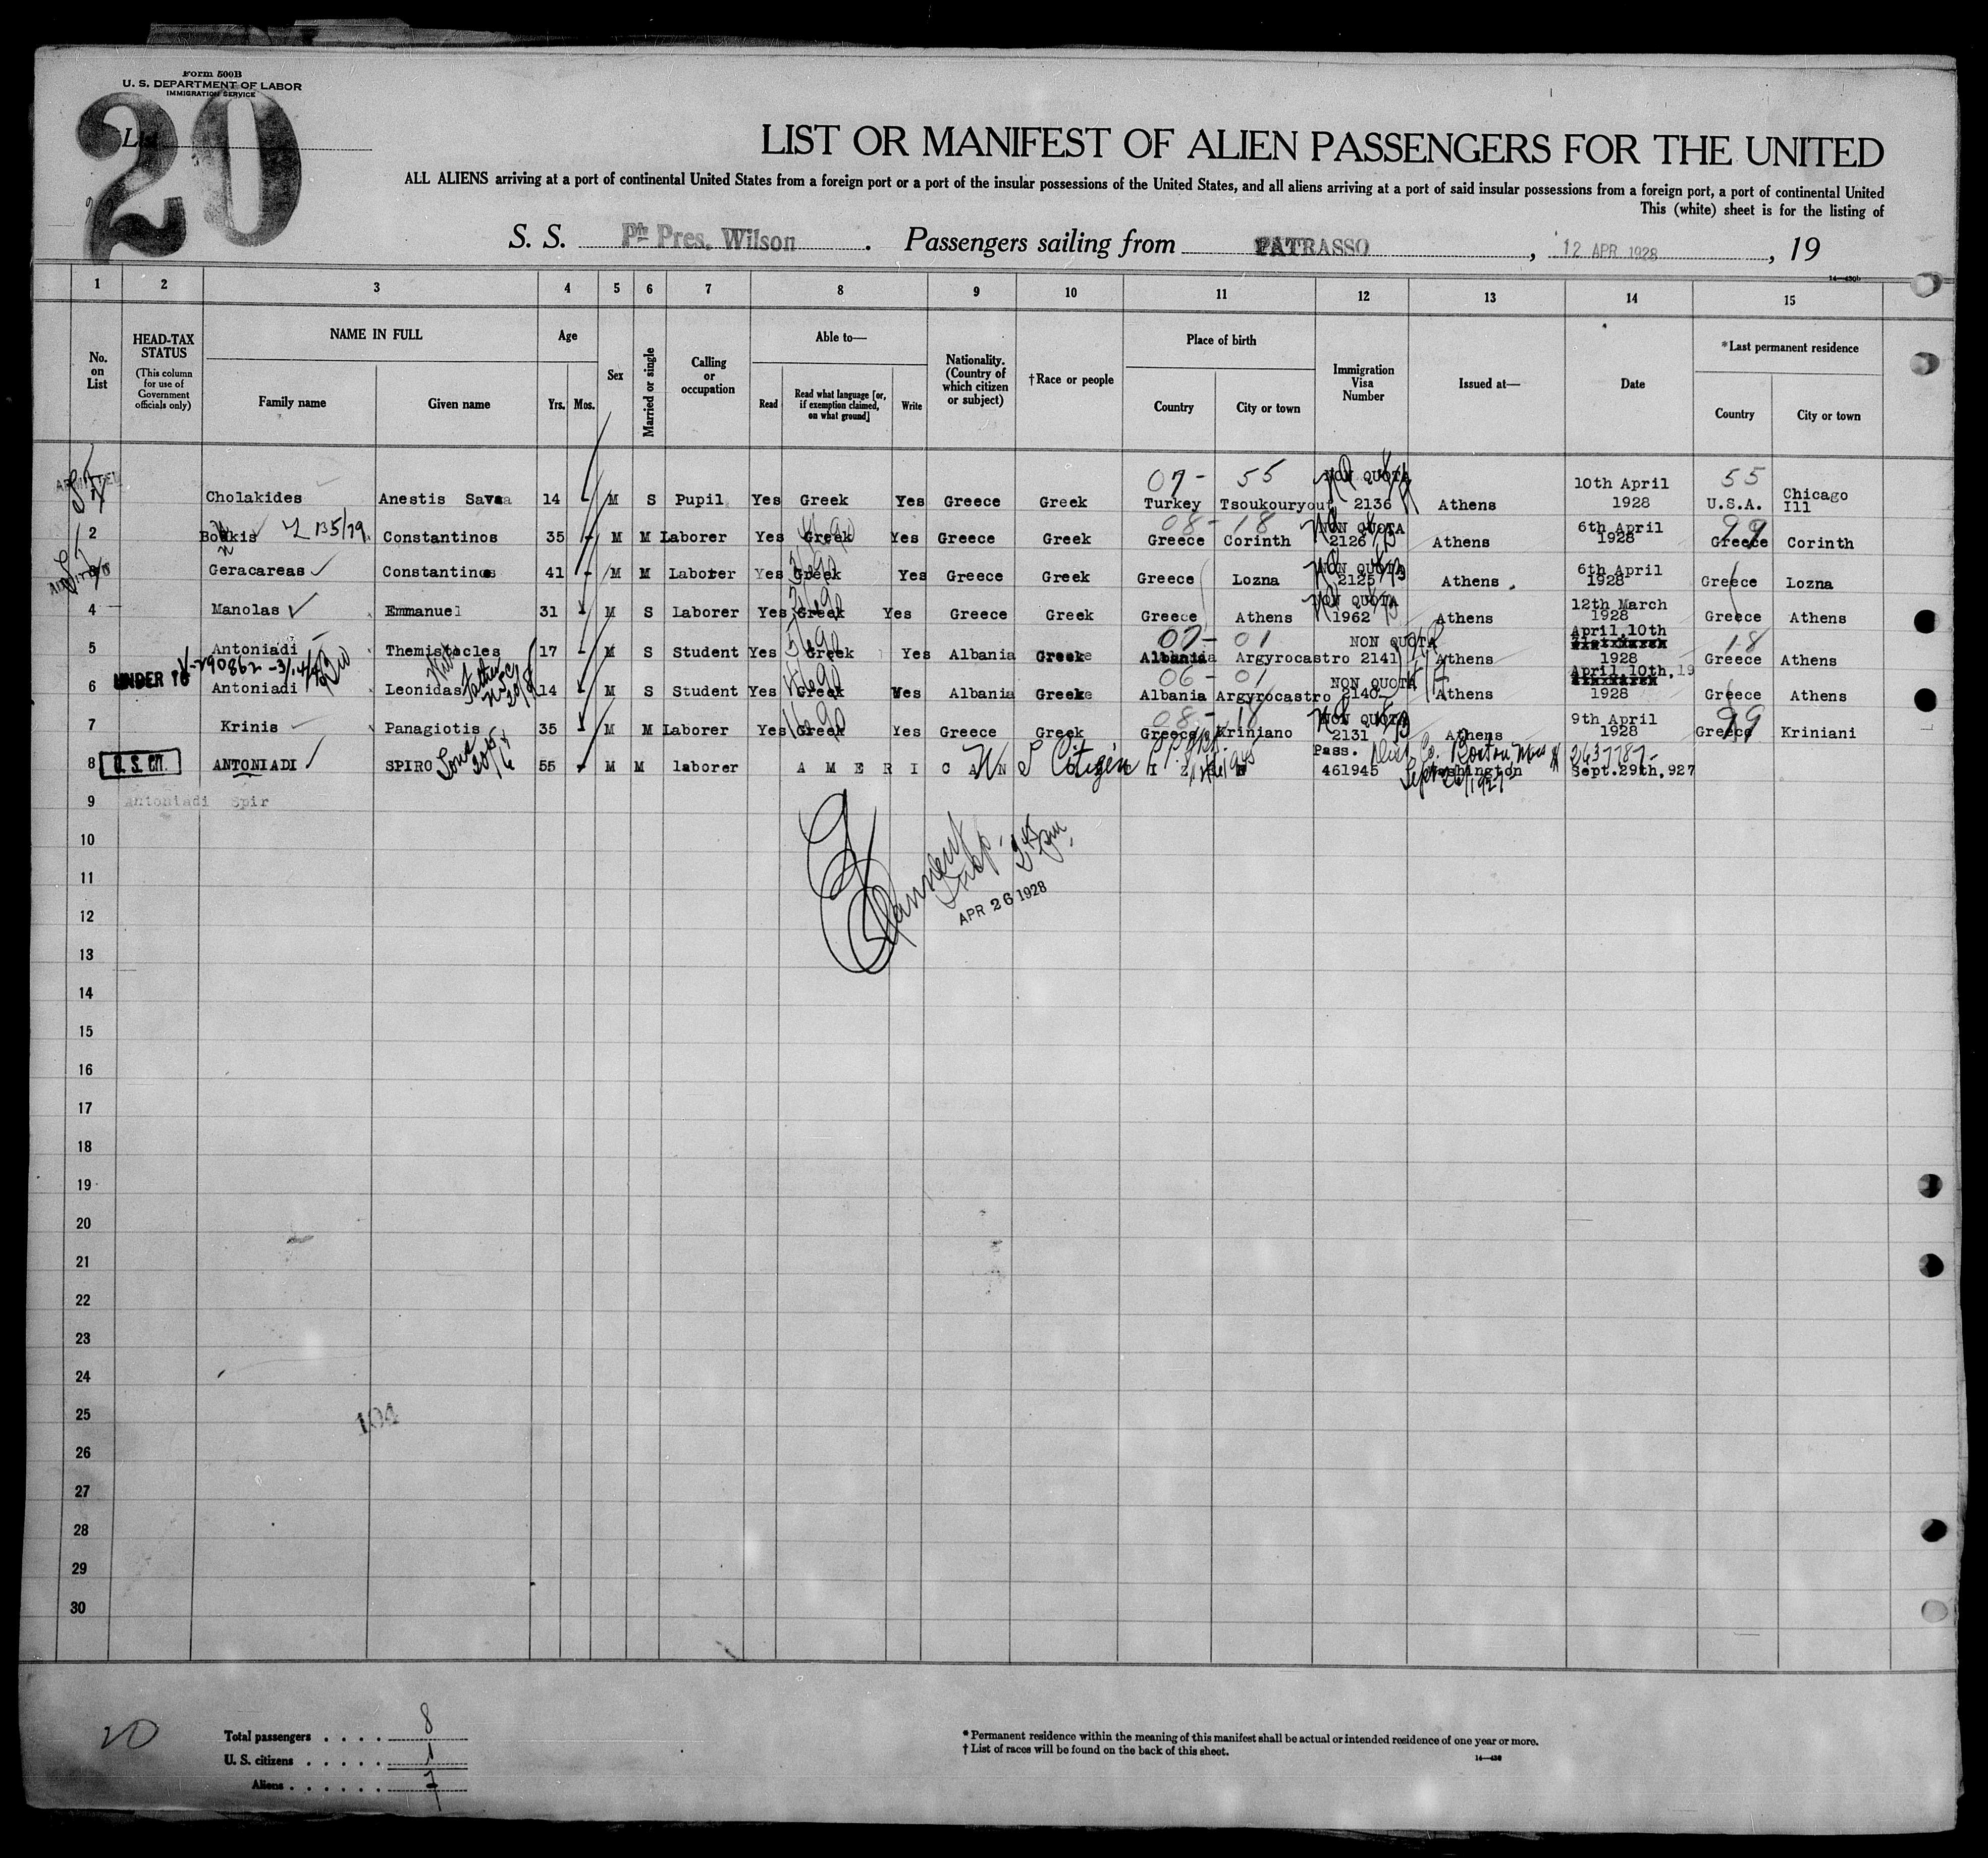 Form 500B
U. S. DEPARTMENT OF LABOR
IMMIGRATION SERVICE
List
20
LIST OR MANIFEST OF ALIEN PASSENGERS FOR THE UNITED
ALL ALIENS arriving at a port of continental United States from a foreign port or a port of the insular possessions of the United States, and all aliens arriving at a port of said insular possessions from a foreign port, a port of continental United
This (white) sheet is for the listing of
S. S. Pres. Wilson. Passengers sailing from PATRASSO, 12 APR 1928, 19
14—430b
1 2 3 4 5 6 7 8 9 10 11 12 13 14 15
No. on List
HEAD-TAX STATUS
(This column for use of Government officials only)
NAME IN FULL
Family name Given name
Age
Yrs. Mos.
Sex
Married or single
Calling or occupation
Able to—
Read Read what language [or, if exemption claimed, on what ground] Write
Nationality. (Country of which citizen or subject)
†Race or people
Place of birth
Country City or town
Immigration Visa Number
Issued at—
Date
*Last permanent residence
Country City or town
07- 55 NON QUOTA 10th April 55
Cholakides Anestis Savaa 14 - M S Pupil Yes Greek Yes Greece Greek Turkey Tsoukouryout 2136 Athens 1928 U.S.A. Chicago Ill
08- 18 NON QUOTA 6th April 99
2 Boukis Constantinos 35 - M M Laborer Yes Greek Yes Greece Greek Greece Corinth 2126 Athens 1928 Greece Corinth
NON QUOTA 6th April
Geracareas Constantinos 41 - M M Laborer Yes Greek Yes Greece Greek Greece Lozna 2125 Athens 1928 Greece Lozna
NON QUOTA 12th March
4 Manolas Emmanuel 31 - M S Laborer Yes Greek Yes Greece Greek Greece Athens 1962 Athens 1928 Greece Athens
07- 01 NON QUOTA April 10th 18
5 Antoniadi Themistocles 17 - M S Student Yes Greek Yes Albania Greek Albania Argyrocastro 2141 Athens 1928 Greece Athens
UNDER 16
06- 01 NON QUOTA April 10th, 19
6 Antoniadi Leonidas 14 - M S Student Yes Greek Yes Albania Greek Albania Argyrocastro 2140 Athens 1928 Greece Athens
08- 18 NON QUOTA 9th April 99
7 Krinis Panagiotis 35 - M M Laborer Yes Greek Yes Greece Greek Greece Kriniano 2131 Athens 1928 Greece Kriniani
8 U. S. CIT. ANTONIADI SPIRO 55 - M M laborer A M E R I C A N U S Citizen Pass. 461945 Washington Sept. 29th, 927
9 Antoniadi Spir
10
11
APR 26 1928
12
13
14
15
16
17
18
19
20
21
22
23
24
25
104
26
27
28
29
30
20
Total passengers . . . . 8
U. S. citizens . . . . . 1
Aliens . . . . . . 7
* Permanent residence within the meaning of this manifest shall be actual or intended residence of one year or more.
† List of races will be found on the back of this sheet.
14—430